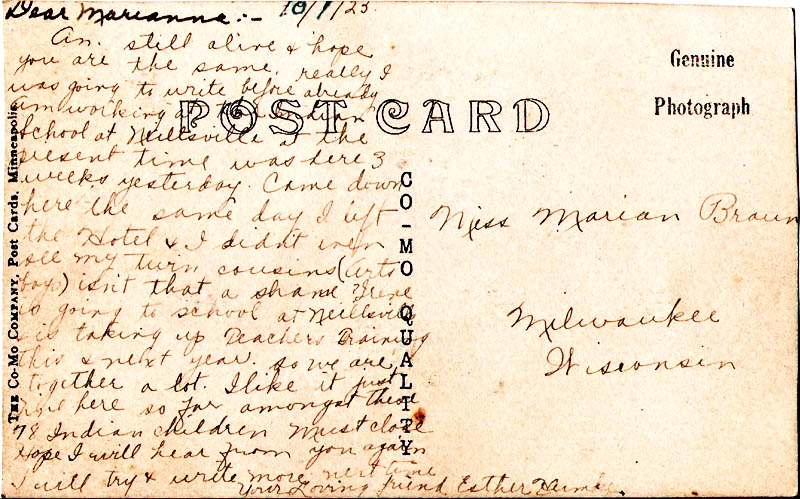 Dear Marianna:- 10/1/23.
Am still alive & hope
you are the same, really I
was going to write before already
Am working at the Indian
School at Neillsville at the
present time was here 3
weeks yesterday. Came down
here the same day I left
the Hotel & I didn't even
see my twin cousins (Arts
boys) isn't that a shame Irene
is going to school at Neillsville
& is taking up Teachers Training
this & next year. so we are
together a lot. I like it just
fine here so far amongst these
78 Indian children Must close
Hope I will hear from you again
I will try & write more next time
Your Loving friend Esther
POST CARD
Genuine
Photograph
Miss Marian Braun
Milwaukee
Wisconsin
THE CO-MO COMPANY, Post Cards, Minneapolis
CO-MO QUALITY